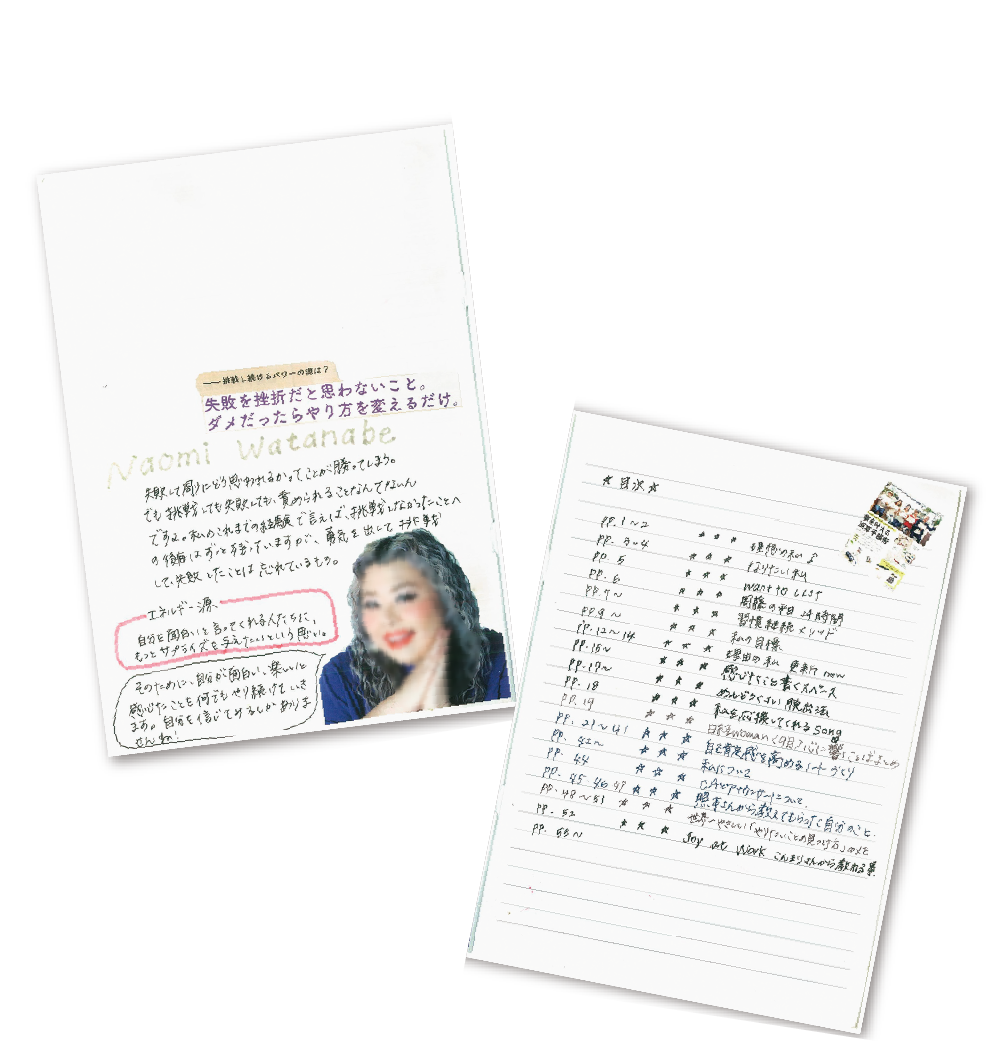 ——挑戦し続けるパワーの源は？
失敗を挫折だと思わないこと。
ダメだったらやり方を変えるだけ。
Naomi Watanabe
失敗して周りにどう思われるかってことが勝ってしまう。
でも挑戦しても失敗しても、責められることなんてないん
ですよ。私のこれまでの経験で言えば、挑戦しなかったことへ
の後悔はずっと残っていますが、勇気を出して挑戦
して失敗したことは忘れているもの。
エネルギー源
自分を面白いと言ってくれる人たちに、
もっとサプライズを与えたいという思い。
そのために、自分が面白い、楽しいと
感じたことを何でもやり続けていき
ます。自分を信じてやるしかありま
せんね！
☆目次☆
PP. 1〜2 ☆☆☆ 理想の私♪
PP. 3・4 ☆☆☆ なりたい私
PP. 5 ☆☆☆ want to LIST
PP. 6 ☆☆☆ 理想の平日 24時間
PP. 7〜 ☆☆☆ 習慣継続メソッド
PP. 9〜 ☆☆☆ 私の目標
PP. 12〜14 ☆☆☆ 理想の私 更新 now
PP. 15〜 ☆☆☆ 感じたこと書くスペース
PP. 17〜 ☆☆☆ めんどうくさい脱出法
PP. 18 ☆☆☆ 私を応援してくれる song
PP. 19 ☆☆☆ 日経woman 心に響くことばまとめ
PP. 21〜41 ☆☆☆ 自己肯定感を高めるノートづくり
PP. 42〜 ☆☆☆ 私について
PP. 44 ☆☆☆ CAとアナウンサーについて
PP. 45 46 47 ☆☆☆ さんから教えてもらった自分のこと。
PP. 48〜51 ☆☆☆ 世界一やさしい「やりたいことの見つけ方」のメモ
PP. 52
PP. 55〜 ☆☆☆ Joy at Work こんまりさんから教わる